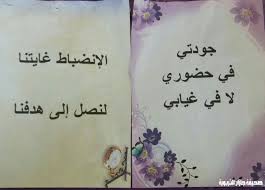 جودتي
في حضوري
لا في غيابي
الإنضباط غايتنا
لنصل إلى هدفنا